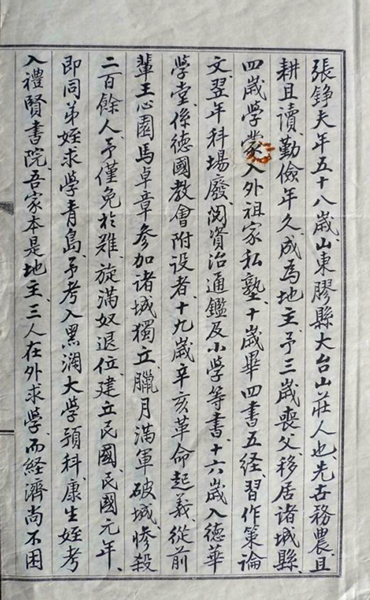 張錚夫年五十八歲、山東膠縣大台山莊人也、先世務農、且
耕且讀、勤儉年久、成為地主、予三歲喪父、移居諸城縣、
四歲學蒙、入外祖家私塾、十歲畢四書五经、習作策論
文、翌年科場廢、閱資治通鑑及小學等書、十六歲入德華
學堂、係德國教會附设者、十九歲辛亥革命起義、從前
輩王心園馬卓章參加诸城獨立、臘月滿軍破城、惨殺
二百餘人、予僅免於难、旋滿奴退位、建立民國、民國元年、
即同弟姪求學青島、予考入黑瀾大學預科、康生姪考
入禮賢書院、吾家本是地主、三人在外求學、而経濟尚不困